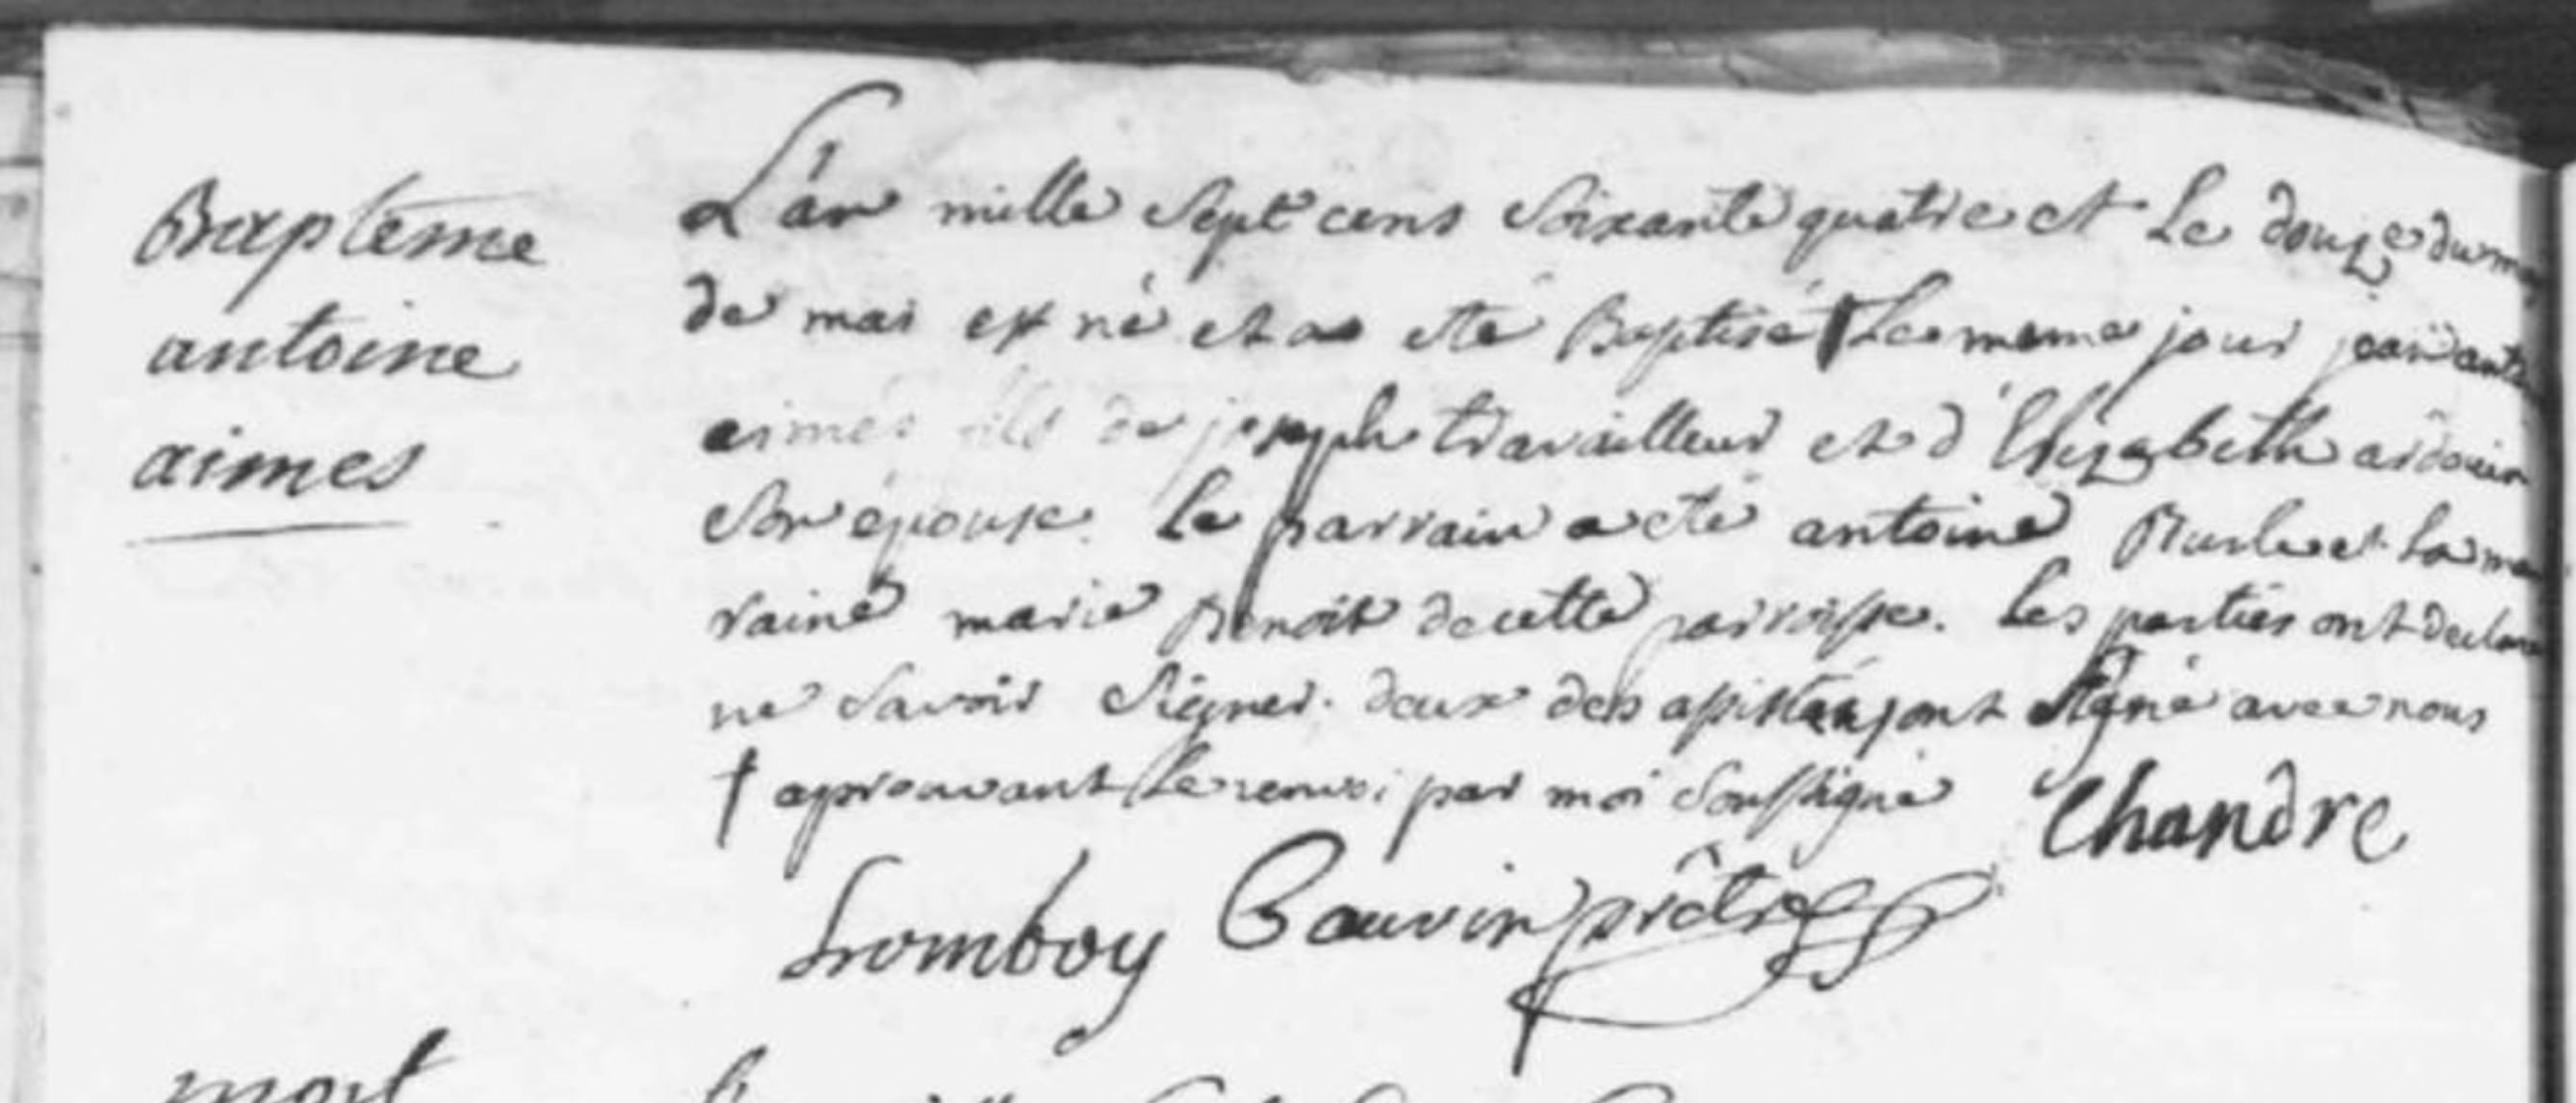 Bapteme
antoine
aimes
L'an mille Sept cens Soixante quatre et Le douze du
de mai est né et a eté Baptisé Le meme jour jean
aimés fils de joseph travailleur et d'Elizabeth ardouin
Son épouse. Le parrain a eté antoine et La
raine marie Benoit de cette parroisse. Les parties ont
ne Savoir Signer. deux des assistans ont Signé avec nous
† aprouvant Le renvoi par moi Soussigné Chandre
Tromboy Gauvin prêtre
mort